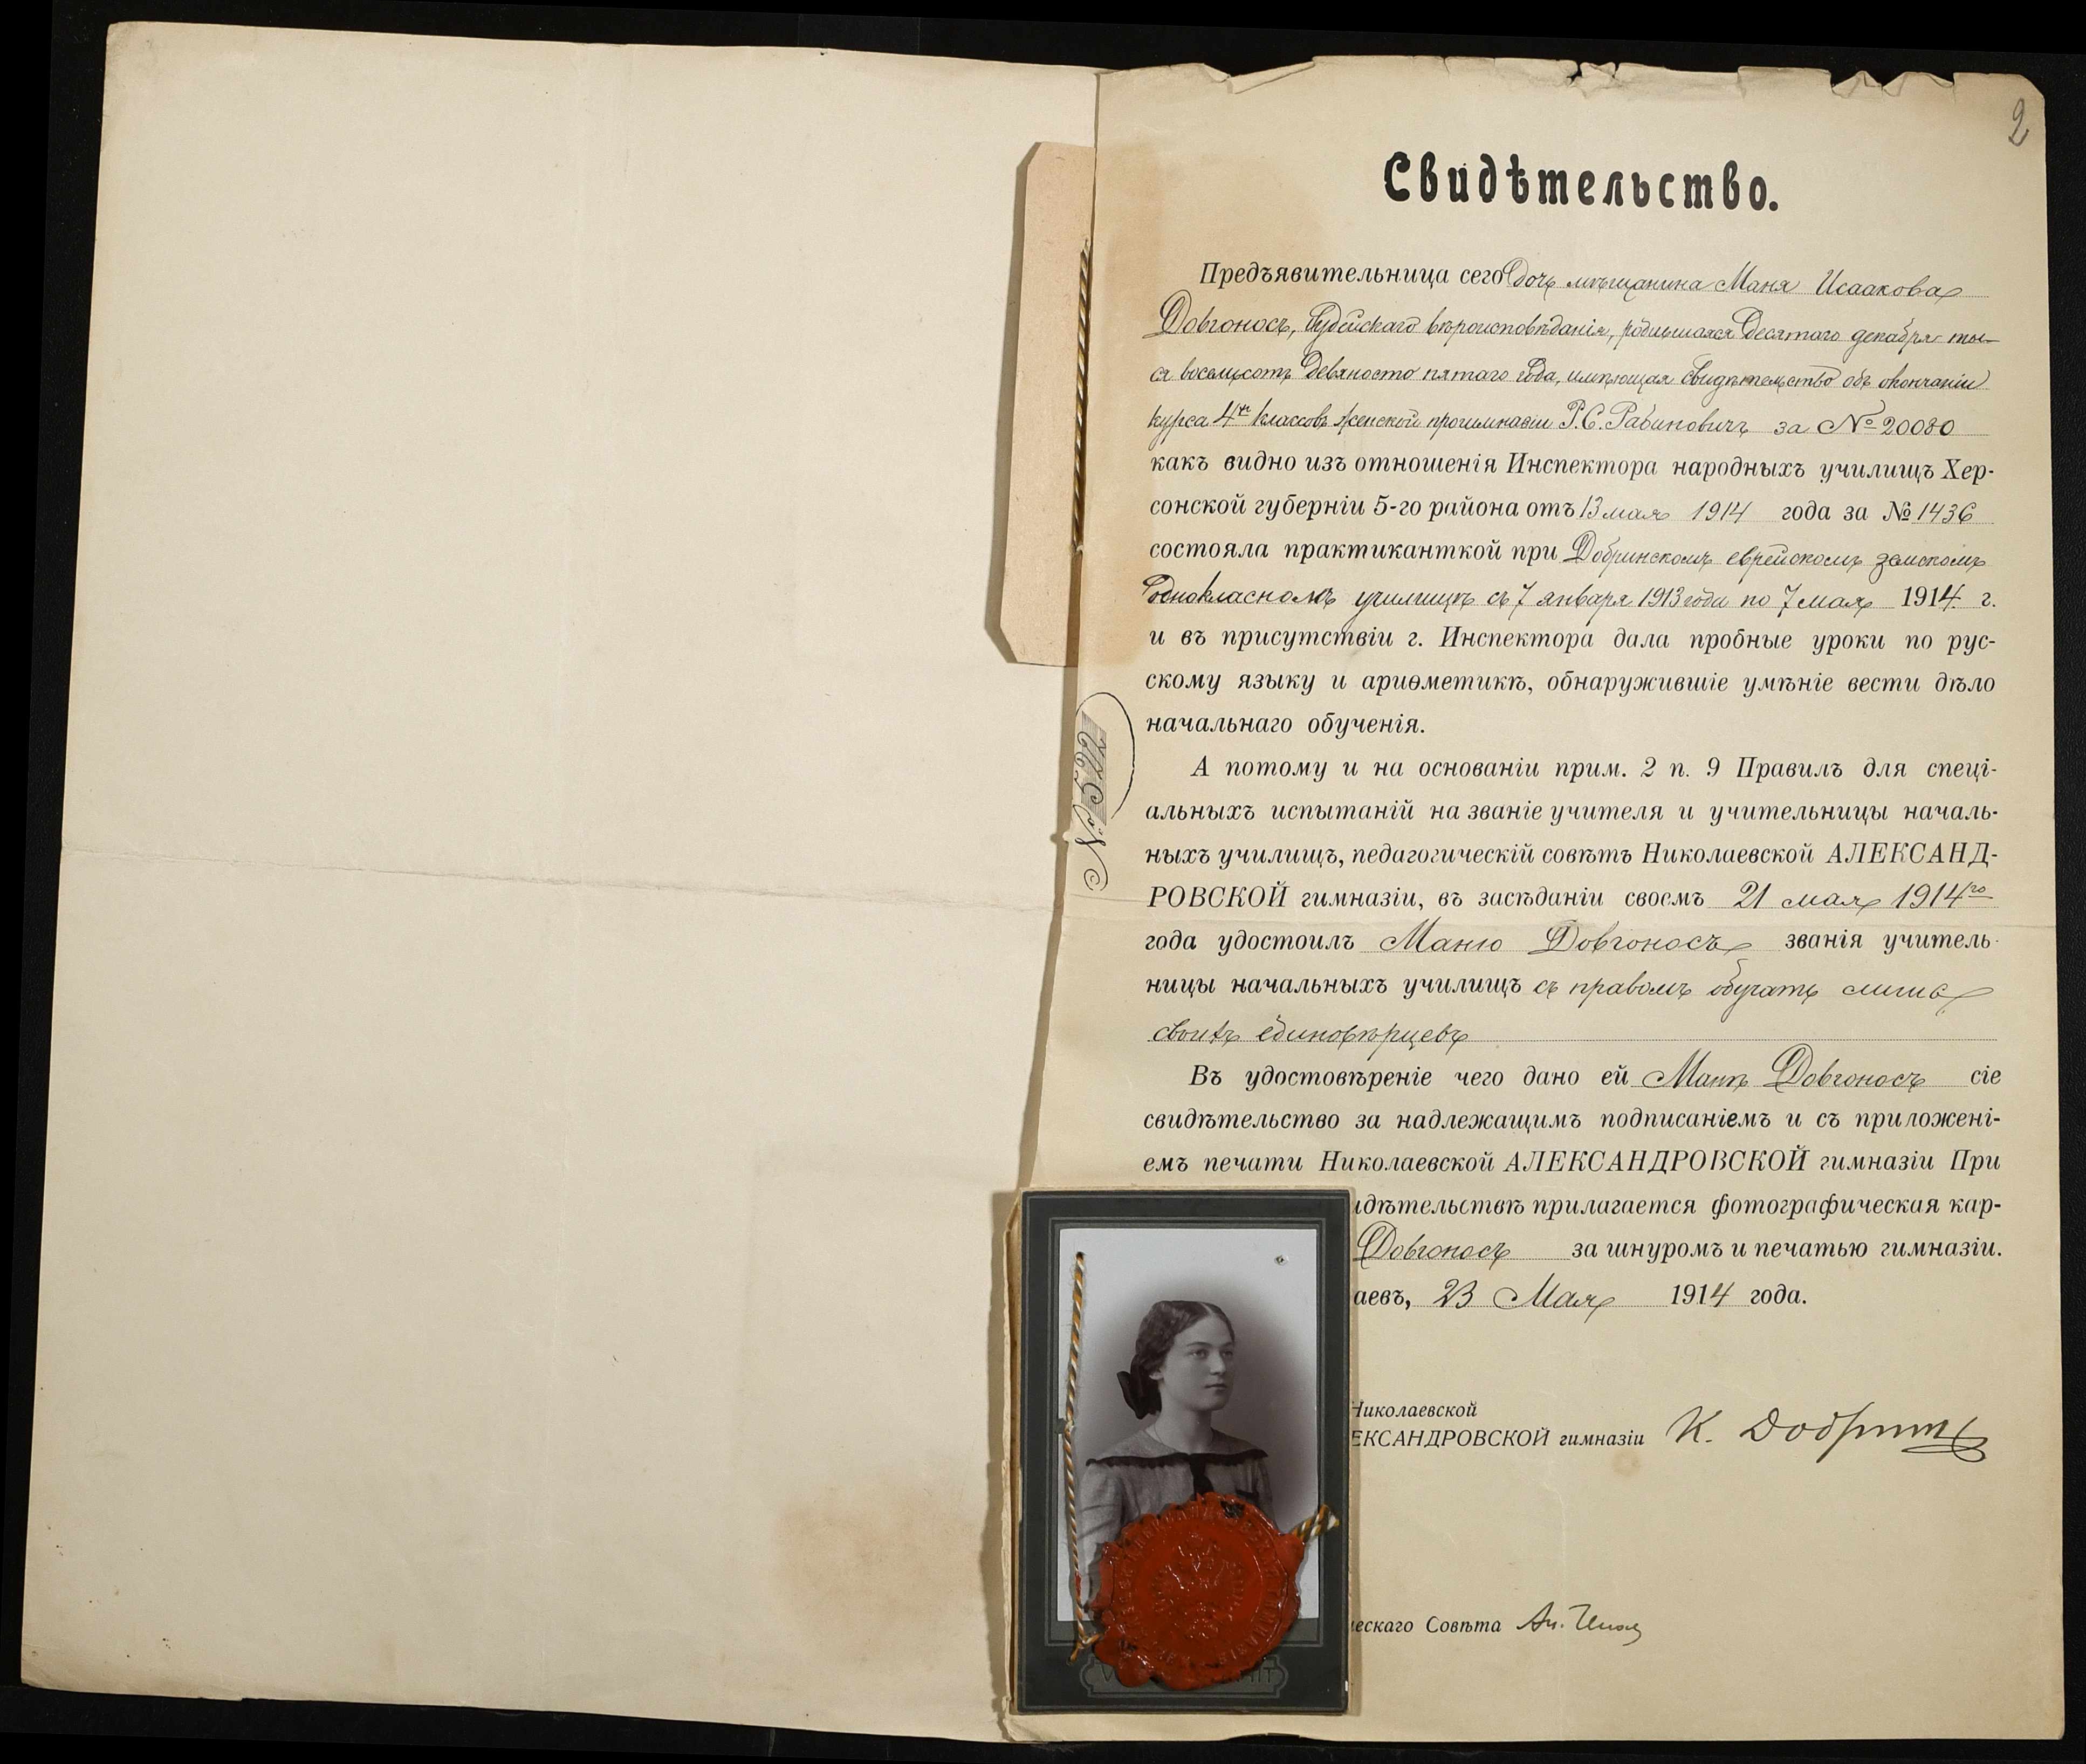 2
Свидѣтельство.
Предъявительница сего дочь мѣщанина Маня Исаакова
Довгоносъ, іудейскаго вѣроисповѣданія, родившаяся десятаго декабря ты-
ся восемьсотъ девяносто пятаго года, имѣющая свидѣтельство объ окончаніи
курса 4хъ классовъ женской прогимназіи Р.С. Рабиновичъ за № 20080
какъ видно изъ отношенія Инспектора народныхъ училищъ Хер-
сонской губерніи 5-го района отъ 13 мая 1914 года за № 1436
состояла практиканткой при Добринскомъ еврейскомъ земскомъ
однокласномъ училищѣ съ 7 января 1913 года по 7 мая 1914 г.
и въ присутствіи г. Инспектора дала пробные уроки по рус-
скому языку и ариѳметикѣ, обнаружившіе умѣніе вести дѣло
начальнаго обученія.
А потому и на основаніи прим. 2 п. 9 Правилъ для спеці-
альныхъ испытаній на званіе учителя и учительницы началь-
ныхъ училищъ, педагогическій совѣтъ Николаевской АЛЕКСАНД-
РОВСКОЙ гимназіи, въ засѣданіи своемъ 21 мая 1914го
года удостоилъ Маню Довгоносъ званія учитель-
ницы начальныхъ училищъ съ правомъ обучать лишь
своихъ единовѣрцевъ
Въ удостовѣреніе чего дано ей Манѣ Довгоносъ сіе
свидѣтельство за надлежащимъ подписаніемъ и съ приложені-
емъ печати Николаевской АЛЕКСАНДРОВСКОЙ гимназіи При
идѣтельствѣ прилагается фотографическая кар-
Довгоносъ за шнуромъ и печатью гимназіи.
аевъ, 23 Мая 1914 года.
Николаевской
ЕКСАНДРОВСКОЙ гимназіи К.
ческаго Совѣта
№